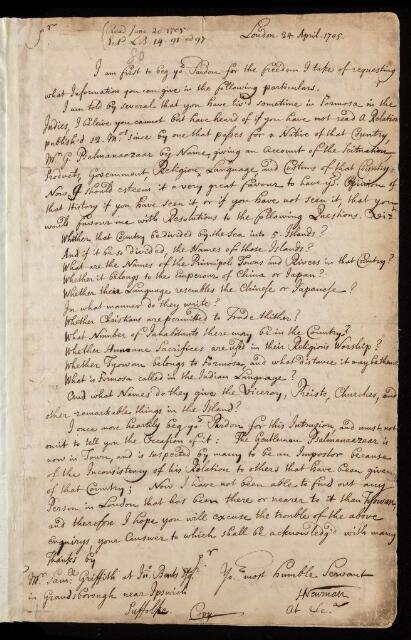 Sr
Read June 20. 1705
L.B. 14. 91
London 24 April. 1705.
I am first to beg yr. Pardon for the freedom I take of requesting
what Information you can give in the following particulars.
I am told by several that you have liv'd sometime in Formosa in the
Indies, I believe you cannot but have heard of if you have not read A Relation
publish'd 12 Ms. since by one that passes for a Native of that Country
Mr G. Psalmanaazaar by Name, giving an Account of the Scituation
Products, Government, Religion, Language and Customs of that Country.
Now I should esteem it a very great favour to have yr. Opinion of
that History if you have seen it or if you have not seen it, that you
would favour me with Resolutions to the following Questions. Vizt
Whether that Country be divided by the Sea into 5. Islands?
And if it be so divided, the Names of those Islands?
What are the Names of the Principle Towns and Rivers in that Country?
Whether it belongs to the Emperour of China or Japan?
Whether their Language resembles the Chinese or Japanese?
In what manner do they write?
Whether Christians are permitted to Trade thither?
What Number of Inhabitants there may be in the Country?
Whether Humane Sacrifices are us'd in their Religious Worship?
Whether Tyowan belongs to Formosa, and what distance it may be thence
What is Formosa called in the Indian Language?
And what Names do they give the Viceroy, Priests, Churches, and
other remarkable things in the Island?
I once more heartily beg yr. Pardon for this Intrusion, and must not
omit to tell you the Occasion of it: The Gentleman Psalmanaazaar is
now in Town, and is suspected by many to be an Impostor because
of the Inconsistency of his Relation to others that have been given
of that Country; Now I have not been able to find out any
Person in London that has been there or nearer to it than Tyowan,
and therefore I hope you will excuse the trouble of the above
enquirys your Answer to which shall be acknowledg'd with many
Thanks by
Sr
Yr. most humble Servant
Mr. Saml. Griffith at Jn.
in Grandsborough near Ipswich
Suffolke.
Copy
Newman
at &c.a